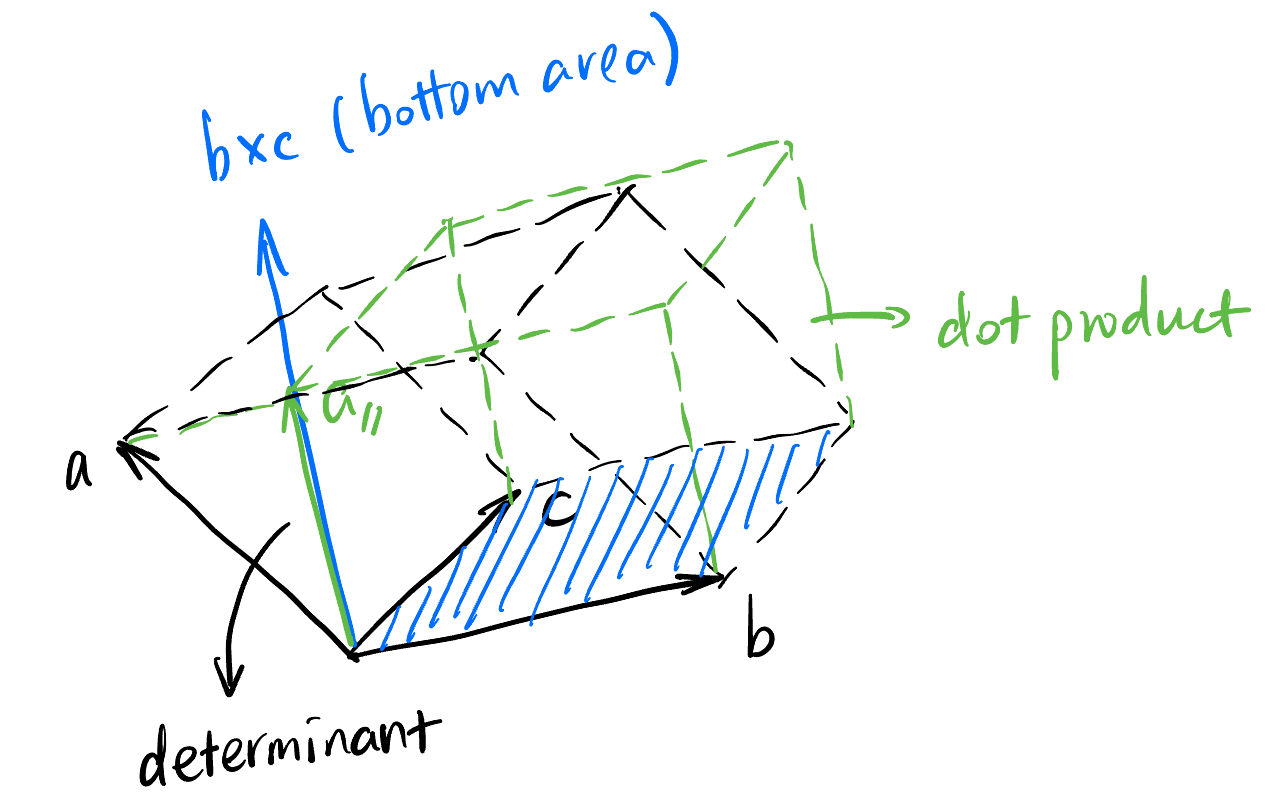 b×c (bottom area)
dot product
a∥
a
c
b
determinant